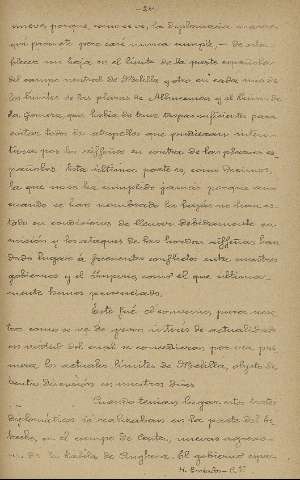 - 24 -
nueva porque, como es , la diplomacia marro
que promete pero casi nunca cumple, - de esta
blecer un bajá, en el límite de la parte española
del campo neutral de Melilla y otro en cada uno de
los límites de las plazas de Alhucemas y el Peñón de
la Gomera, que había de tener tropas suficientes para
evitar todos los atropellos que pudieran inten
tarse por los riffeños en contra de las plazas es
pañolas. Esta última parte es, como decimos,
la que no se ha cumplido jamás porque aun
cuando se han nombrado los bajás no han es
tado en condiciones de llenar debidamente su
misión y los ataques de las hordas riffeñas han
dado lugar á frecuentes conflictos entre nuestro
gobierno y el Imperio, como el que última-
mente hemos presenciado.
Este fué el convenio, para noso
tros como se ve de gran interés de actualidad
en virtud del cual se concedieron por vez pri
mera los actuales límites de Melilla, objeto de
tanta discusión en nuestros días.
Cuando tenían lugar estos tratos
diplomáticos se realizaban en la parte del Es
trecho, en el campo de Ceuta, nuevas agresio
nes de la kabila de Anghera. El gobierno espa-